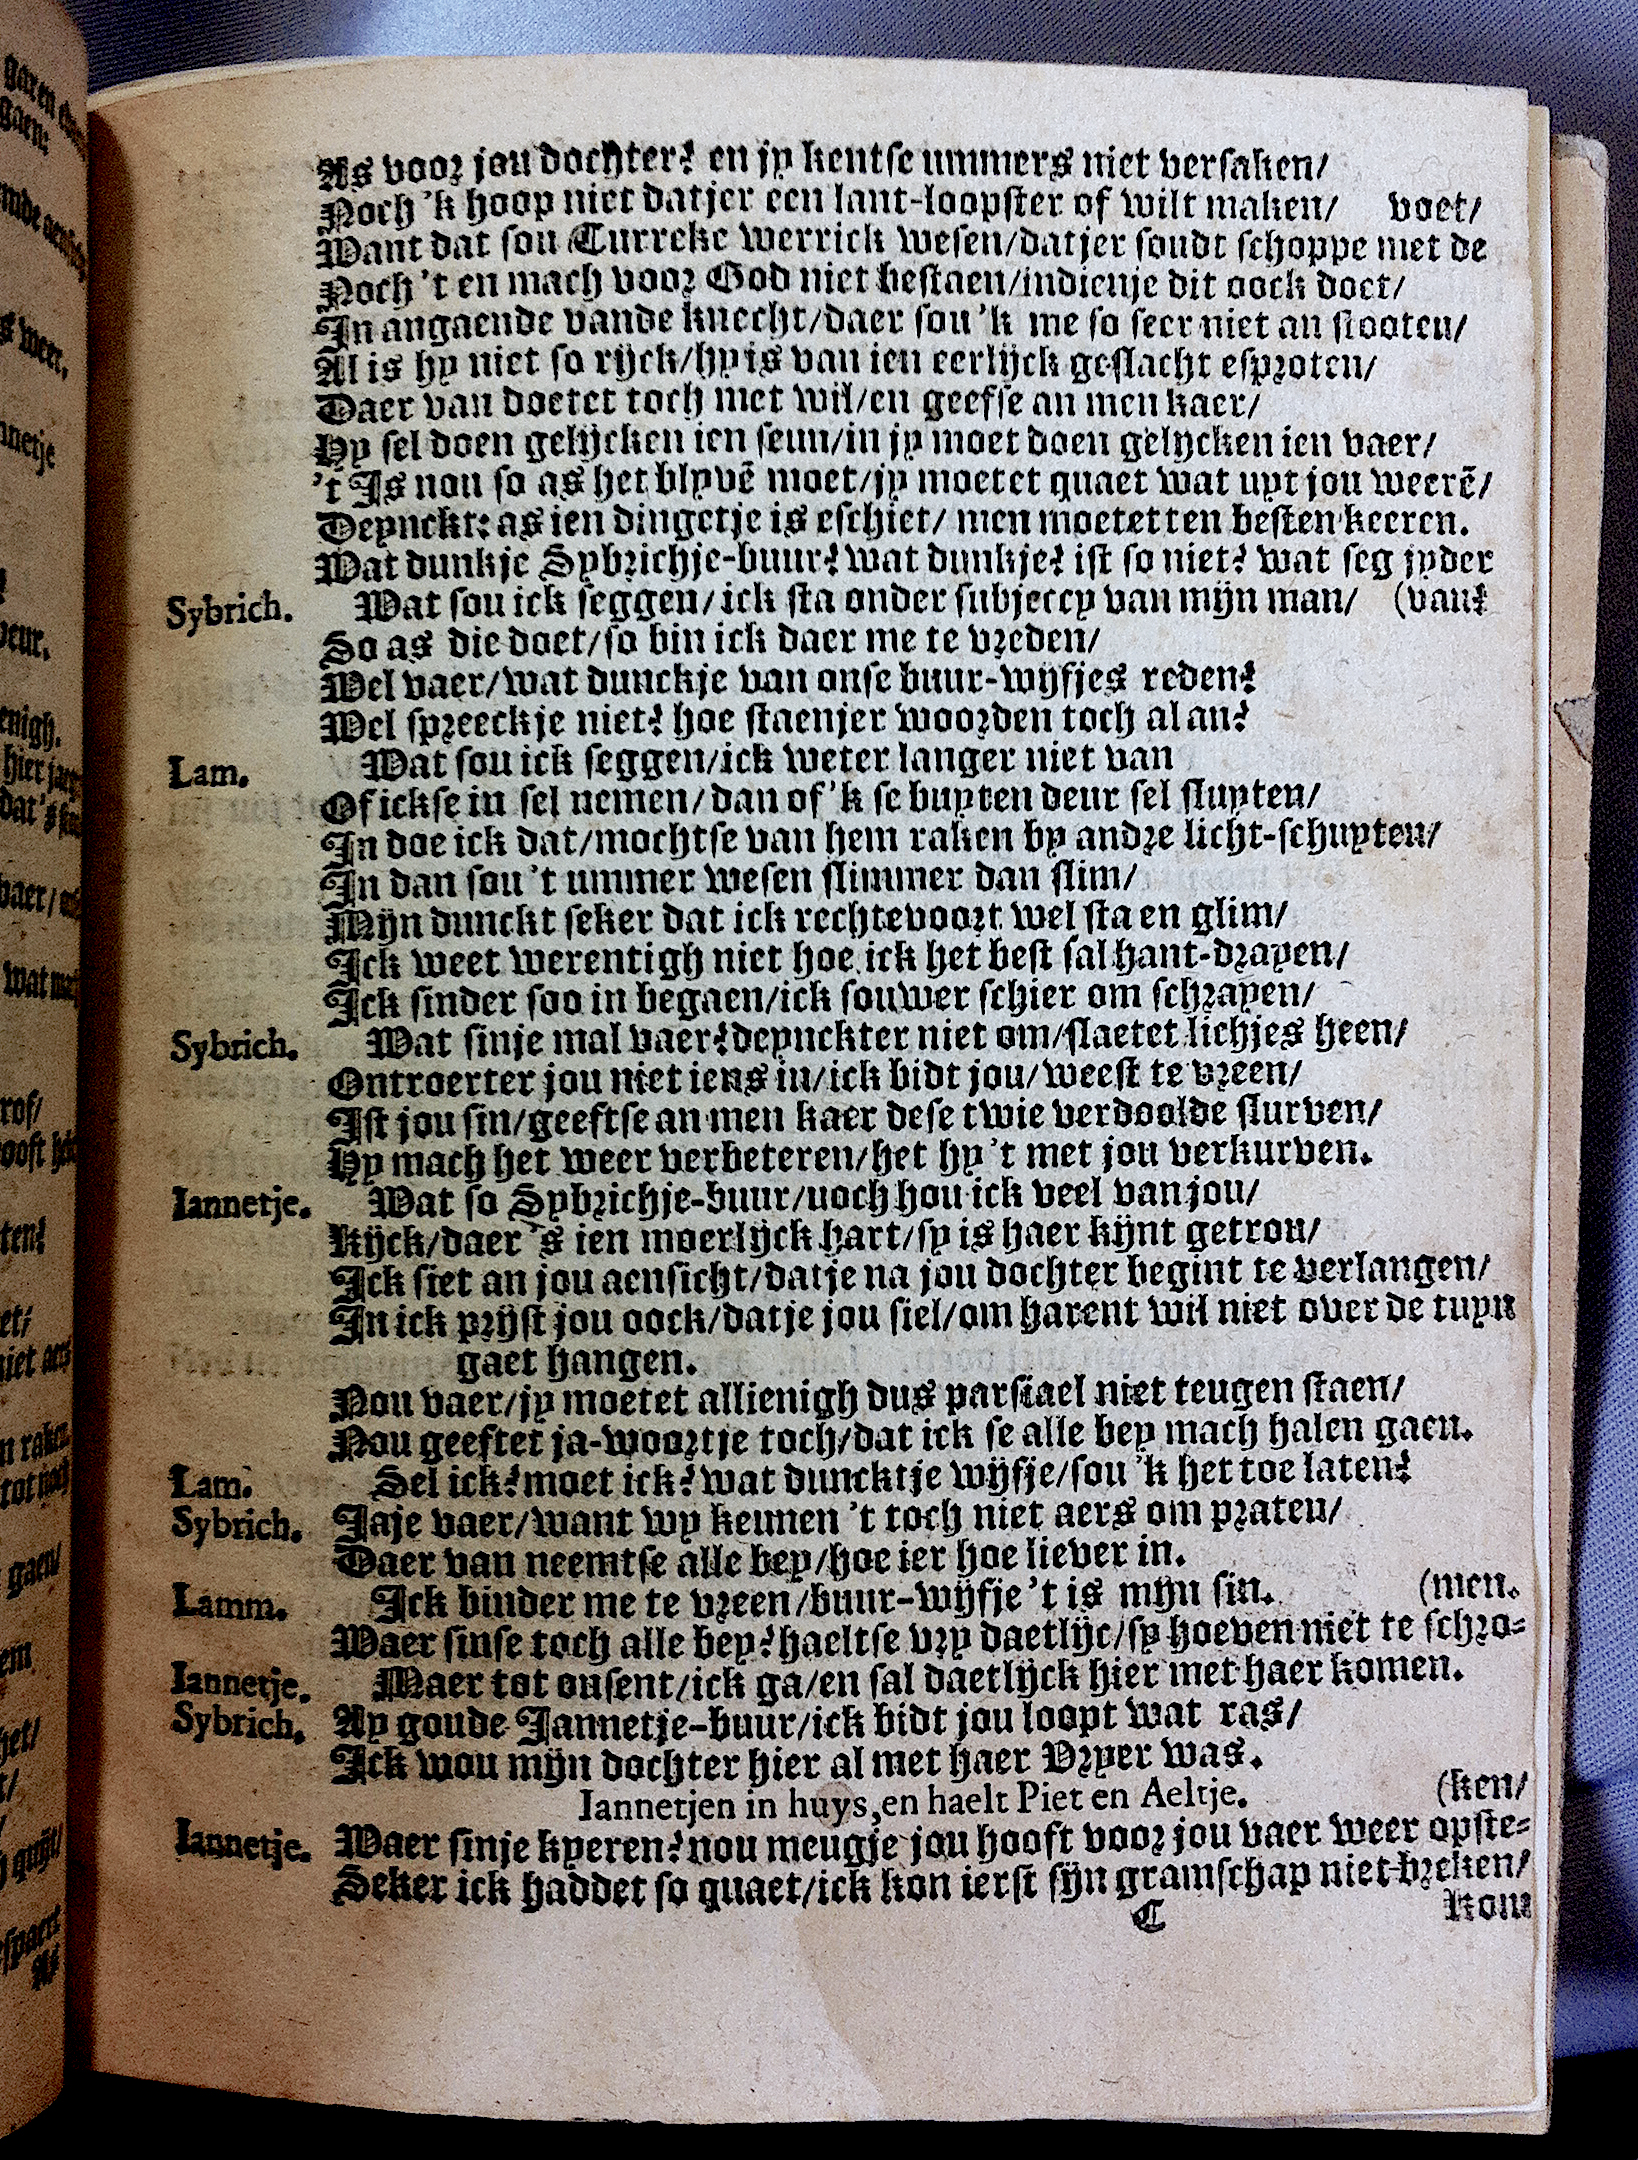 As voor jou dochter? en jy kentse ummers niet versaken/
Noch 'k hoop niet datjer een lant-loopster of wilt maken/ voet/
Want dat sou Turreke werrick wesen/datjer soudt schoppe met de
Noch 't en mach voor God niet bestaen/indienje dit oock doet/
In angaende vande knecht/daer sou 'k me so seer niet an stooten/
Al is hy niet so rijck/hy is van ien eerlijck geslacht esproten/
Daer van doetet toch met wil/en geefse an men kaer/
Hy sel doen gelijcken ien seun/in jy moet doen gelijcken ien vaer/
't Is nou so as het blyvē moet/jy moetet quaet wat uyt jou weerē/
Deynckt: as ien dingetje is eschiet/ men moetet ten besten keeren.
Wat dunkje Sybrichje-buur? wat dunkje? ist so niet? wat seg jyder
Sybrich. Wat sou ick seggen/ick sta onder subjeccy van mijn man/ (van?
So as die doet/so bin ick daer me te vreden/
Wel vaer/wat dunckje van onse buur-wijfjes reden?
Wel spreeckje niet? hoe staenjer woorden toch al an?
Lam. Wat sou ick seggen/ick weter langer niet van
Of ickse in sel nemen/dan of 'k se buyten deur sel sluyten/
In doe ick dat/mochtse van hem raken by andre licht-schuyten/
In dan sou 't ummer wesen slimmer dan slim/
Mijn dunckt seker dat ick rechtevoort wel sta en glim/
Ick weet werentigh niet hoe ick het best sal hant-drayen/
Ick sinder soo in begaen/ick souwer schier om schrayen/
Sybrich. Wat sinje mal vaer? deynckter niet om/slaetet lichjes heen/
Ontroerter jou niet iens in/ick bidt jou/weest te vreen/
Ist jou sin/geeftse an men kaer dese twie verdoolde slurven/
Hy mach het weer verbeteren/het hy 't met jou verkurven.
Iannetje. Wat so Sybrichje-buur/noch hou ick veel van jou/
Kijck/daer 's ien moerlijck hart/sy is haer kijnt getrou/
Ick siet an jou aensicht/datje na jou dochter begint te verlangen/
In ick prijst jou oock/datje jou siel/om harent wil niet over de tuyn
gaet hangen.
Nou vaer/jy moetet allienigh dus parsiael niet teugen staen/
Nou geeftet ja-woortje toch/dat ick se alle bey mach halen gaen.
Lam. Sel ick? moet ick? wat duncktje wijfje/sou 'k het toe laten?
Sybrich. Jaje vaer/want wy kennen 't toch niet aers om praten/
Daer van neemtse alle bey/hoe ier hoe liever in.
Lamm. Ick binder me te vreen/buur-wijfje 't is mijn sin. (men.
Waer sinse toch alle bey? haeltse vry daetlijc/sy hoeven niet te schro-
Iannetje. Maer tot onsent/ick ga/en sal daetlijck hier met haer komen.
Sybrich. Ay goude Jannetje-buur/ick bidt jou loopt wat ras/
Ick wou mijn dochter hier al met haer Vryer was.
Iannetjen in huys, en haelt Piet en Aeltje. (ken/
Iannetje. Waer sinje kyeren? nou meugje jou hooft voor jou vaer weer opste-
Seker ick haddet so quaet/ick kon ierst sijn gramschap niet breken/
C Kom